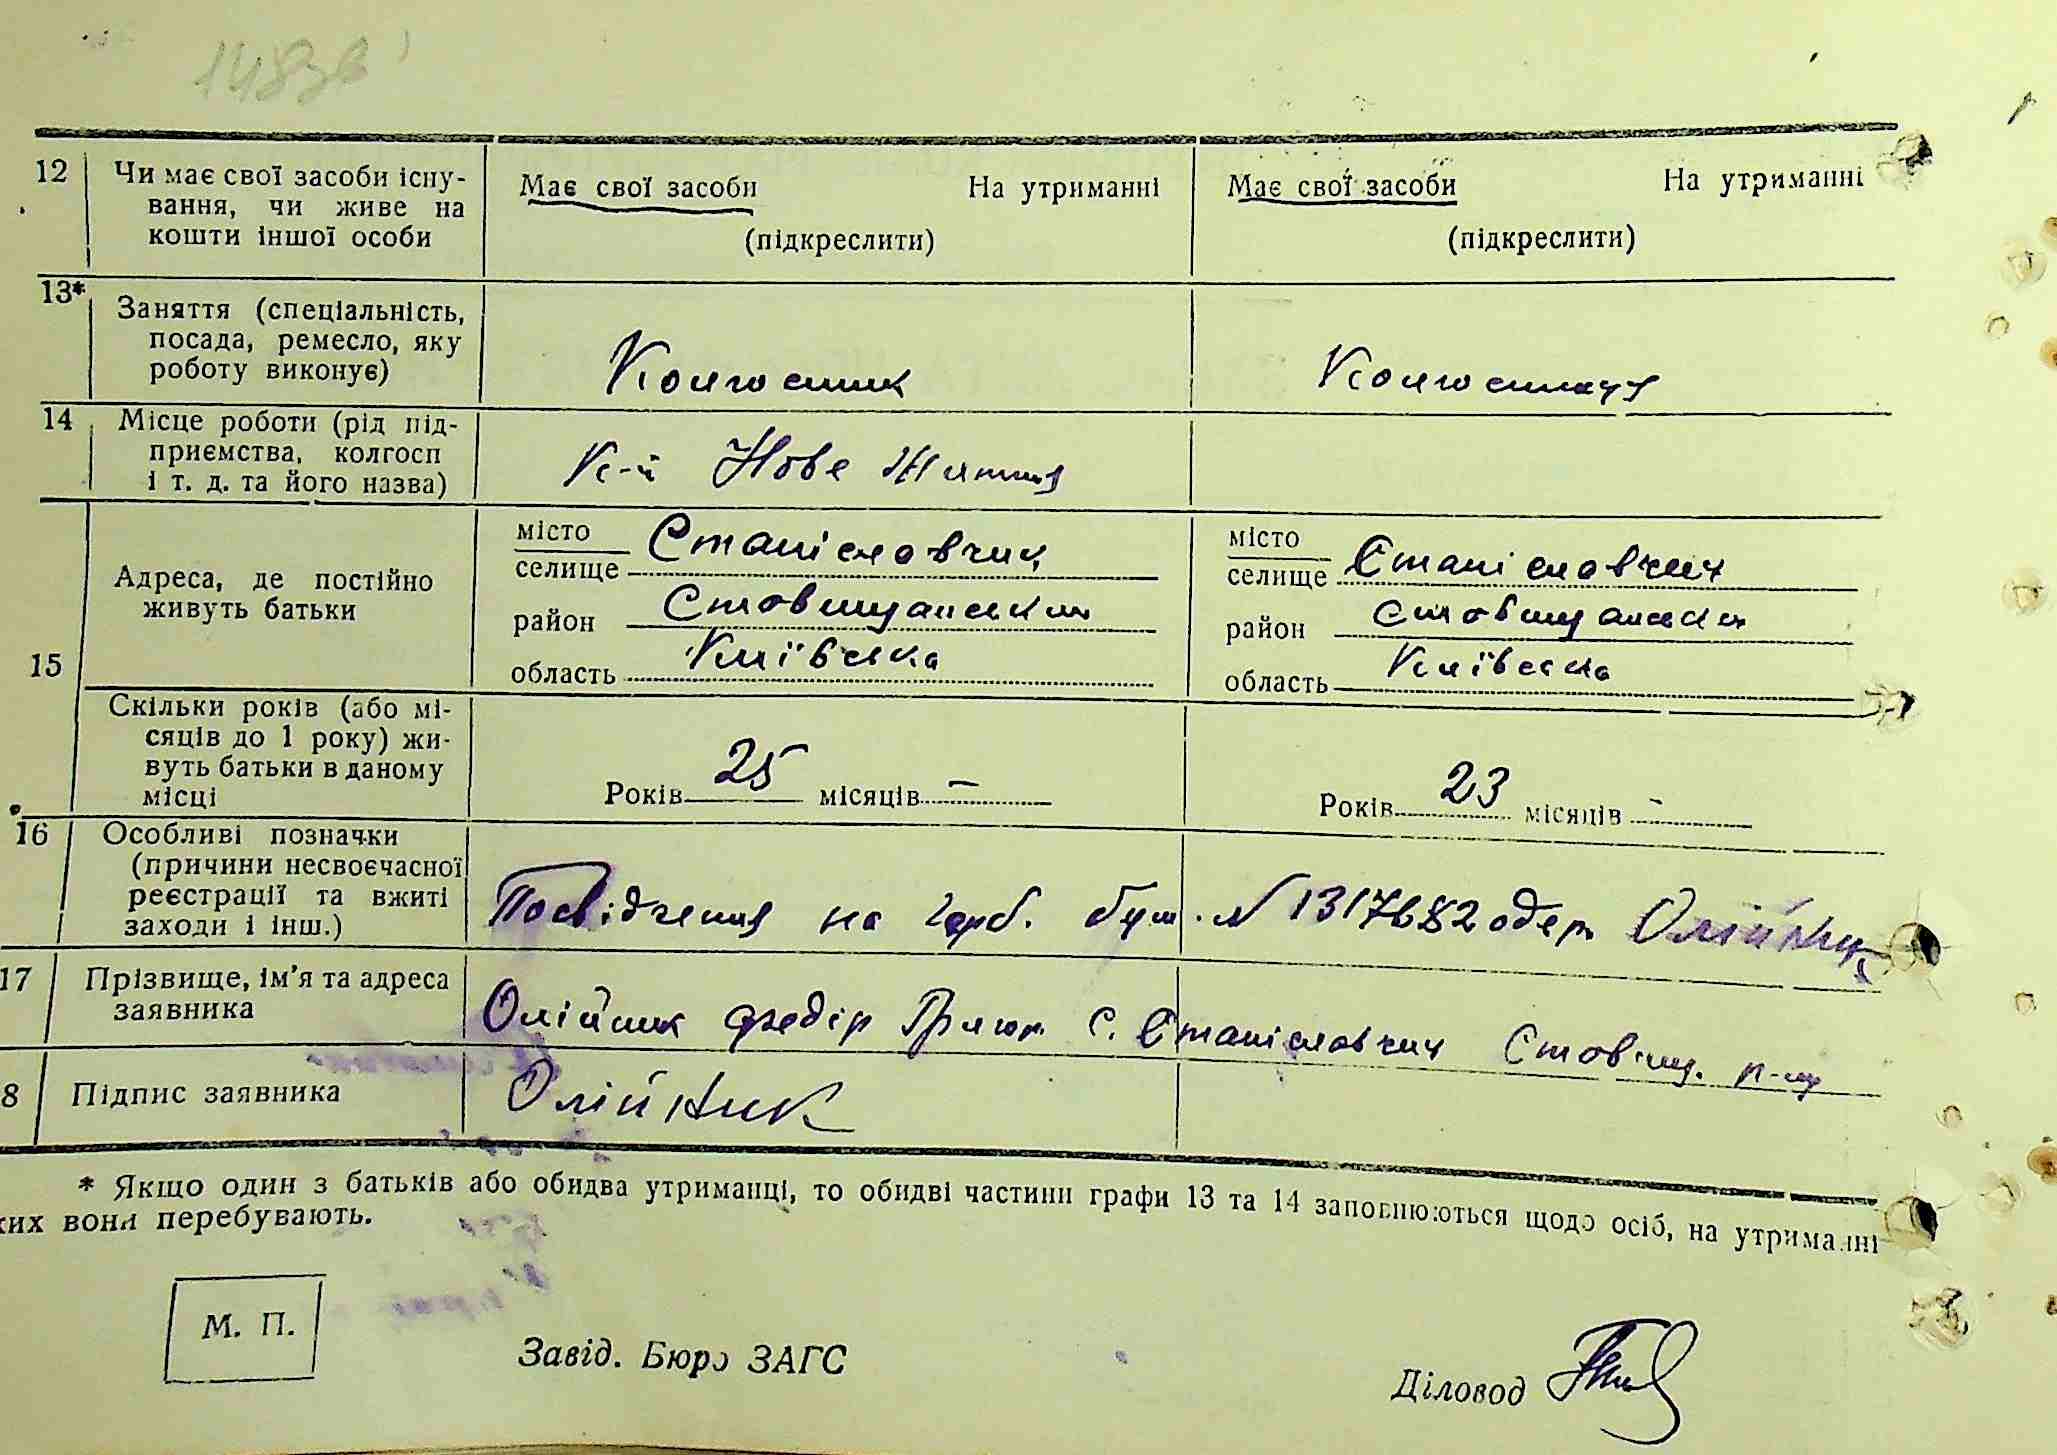 12 Чи має свої засоби існу-
вання, чи живе на
кошти іншої особи
Має свої засоби На утриманні
(підкреслити)
Має свої засоби На утриманні
(підкреслити)
13* Заняття (спеціальність,
посада, ремесло, яку
роботу виконує)
Колгоспник
Колгоспниця
14 Місце роботи (рід під-
приємства, колгосп
і т. д. та його назва)
К-п Нове Життя
15
Адреса, де постійно
живуть батьки
місто
селище Станіславчик
район Ставищанський
область Київська
місто
селище Станіславчик
район Ставищанський
область Київська
Скільки років (або мі-
сяців до 1 року) жи-
вуть батьки в даному
місці
Років 25 місяців –
Років 23 місяців –
16 Особливі позначки
(причини несвоєчасної
реєстрації та вжиті
заходи і інш.)
Посвідчення на герб. бум. № 1317682 одер. Олійник
17 Прізвище, ім'я та адреса
заявника
Олійник Федір Григор. с. Станіславчик Ставищ. р-ну
8 Підпис заявника
Олійник
* Якщо один з батьків або обидва утриманці, то обидві частини графи 13 та 14 заповнюються щодо осіб, на утриманні
ких вони перебувають.
М. П.
Завід. Бюро ЗАГС
Діловод